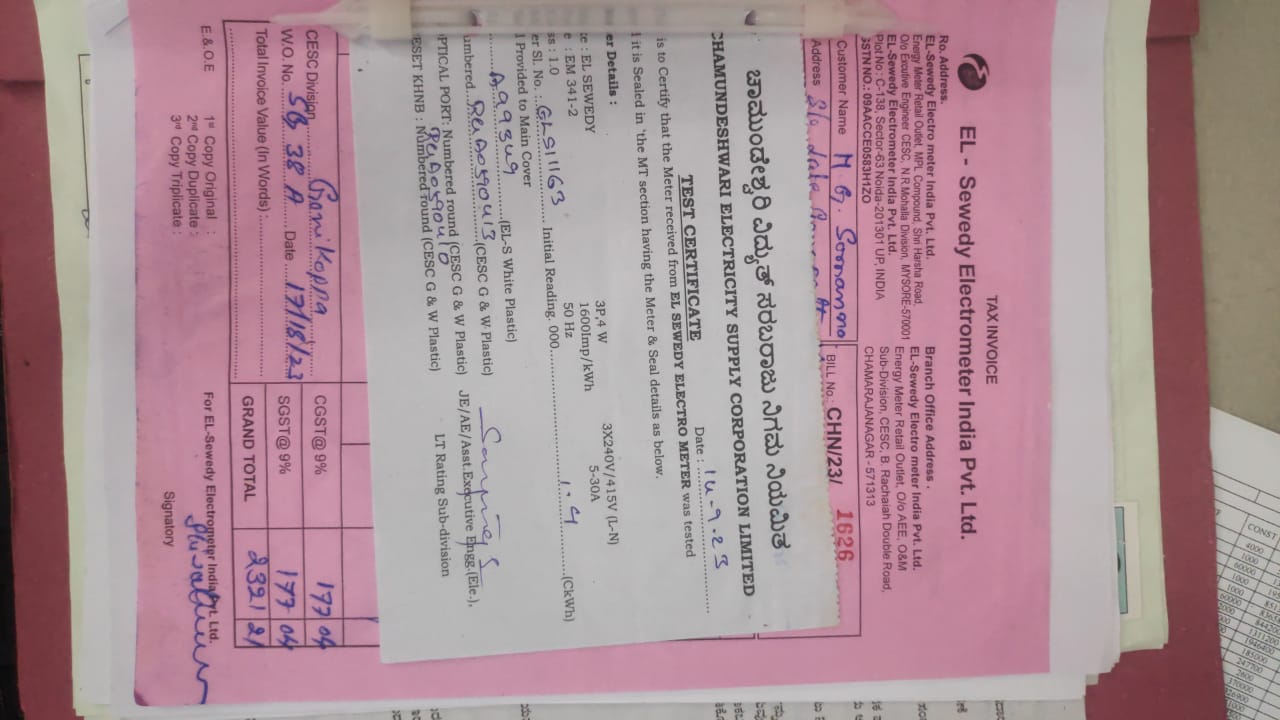 TAX INVOICE
EL - Sewedy Electrometer India Pvt. Ltd.
Ro. Address.
EL-Sewedy Electro meter India Pvt. Ltd.
Energy Meter Retail Outlet, MPL Compound, Shri Harsha Road,
O/o Excutive Engineer CESC, N.R Mohalla Division, MYSORE-570001
EL-Sewedy Electrometer India Pvt. Ltd.
Plot No : C-138, Sector-63 Noida-201301 UP, INDIA
GSTN NO.: 09AACCE0583H1ZO
Branch Office Address .
EL-Sewedy Electro meter India Pvt. Ltd.
Energy Meter Retail Outlet, O/o AEE, O&M
Sub-Division, CESC, B. Rachaiah Double Road,
CHAMARAJANAGAR - 571313
Customer Name M G.
BILL No.: CHN/23/ 1626
Address
ಚಾಮುಂಡೇಶ್ವರಿ ವಿದ್ಯುತ್ ಸರಬರಾಜು ನಿಗಮ ನಿಯಮಿತ
CHAMUNDESHWARI ELECTRICITY SUPPLY CORPORATION LIMITED
TEST CERTIFICATE
Date : 14-9-23
is to Certify that the Meter received from EL SEWEDY ELECTRO METER was tested
it is Sealed in 'the MT section having the Meter & Seal details as below.
er Details :
e : EL SEWEDY 3P,4 W 3X240V/415V (L-N)
e : EM 341-2 1600Imp/kWh 5-30A
ss : 1.0 50 Hz
er Sl. No. : GLS11163 Initial Reading. 000 1.4 (CkWh)
l Provided to Main Cover
A99349 (EL-S White Plastic)
umbered (CESC G & W Plastic)
PTICAL PORT: Numbered round (CESC G & W Plastic)
RESET KHNB : Numbered round (CESC G & W Plastic)
JE/AE/Asst.Executive Engg.(Ele.),
LT Rating Sub-division
CESC Division Gonikoppa
W.O. No. SB 38 A Date 17/18/23
Total Invoice Value (In Words) :
CGST@ 9% 177 04
SGST@ 9% 177 04
GRAND TOTAL 2321 21
E.& O.E 1st Copy Original :
2nd Copy Duplicate :
3rd Copy Triplicate :
For EL-Sewedy Electrometer India Pvt. Ltd.
Signatory